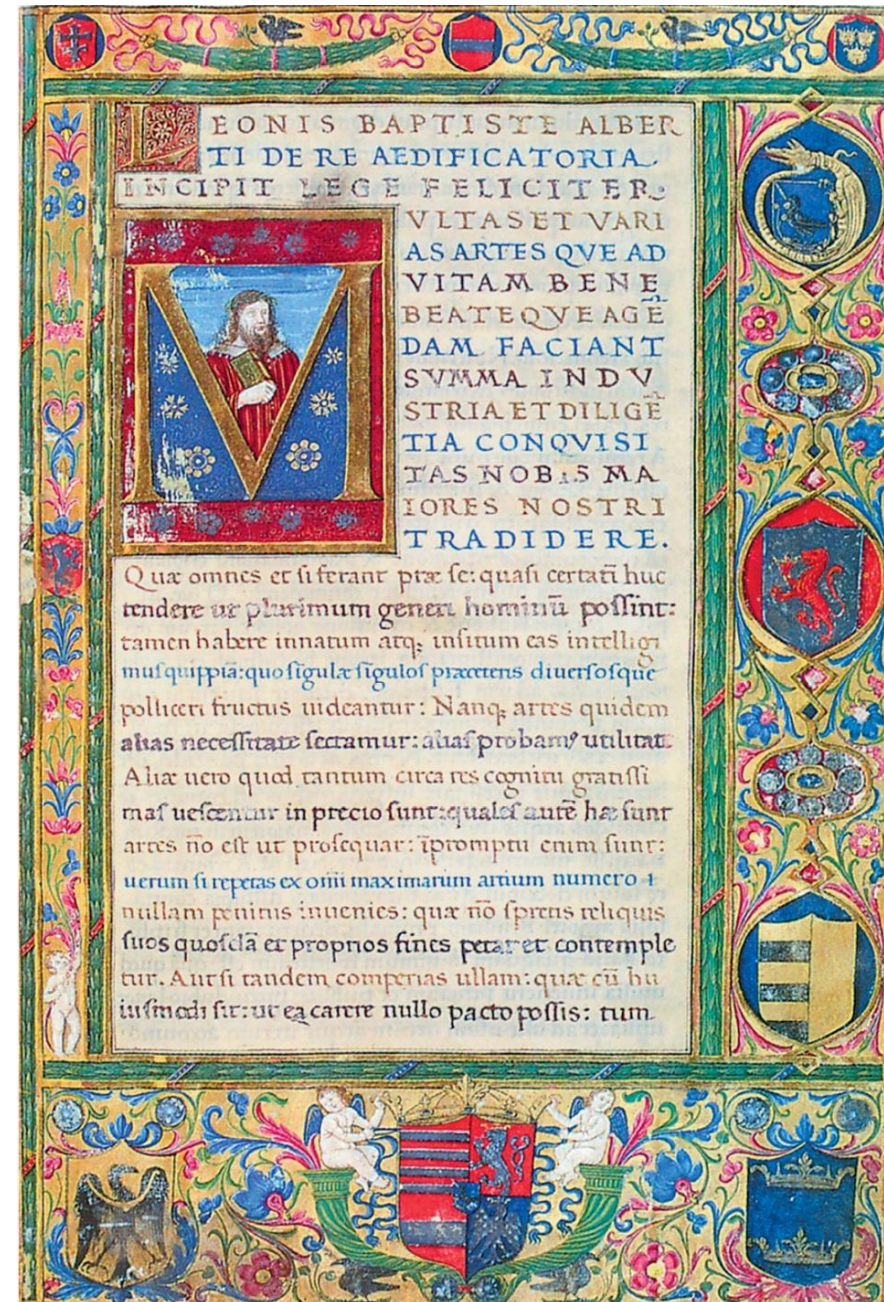 LEONIS BAPTISTE ALBER
TI DE RE AEDIFICATORIA.
INCIPIT LEGE FELICITER.
MVLTAS ET VARI
AS ARTES QVE AD
VITAM BENE
BEATEQVE AGĒ
DAM FACIANT
SVMMA INDV
STRIA ET DILIGĒ
TIA CONQVISI
TAS NOBIS MA
IORES NOSTRI
TRADIDERE.
Quæ omnes et si ferant præ se: quasi certatī huc
tendere ut plurimum generi hominū possint:
tamen habere innatum atq; insitum eas intelligi
mus quippiā: quo sīgulæ sīgulos præceteris diuersosque
polliceri fructus uideantur: Nanq; artes quidem
alias necessitate sectamur: alias probamꝰ utilitate
Aliæ uero quod tantum circa res cognitu gratissi
mas uescentur in precio sunt: quales autē hæ sunt
artes nō est ut prosequar: īpromptu enim sunt:
uerum si repetas ex omī maximarum artium numero
nullam penitus inuenies: quæ nō spretis reliquis
suos quosdā et proprios fines petat et contemple
tur. Aut si tandem comperias ullam: quæ cū hu
iusmodi sit: ut ea carere nullo pacto possis: tum